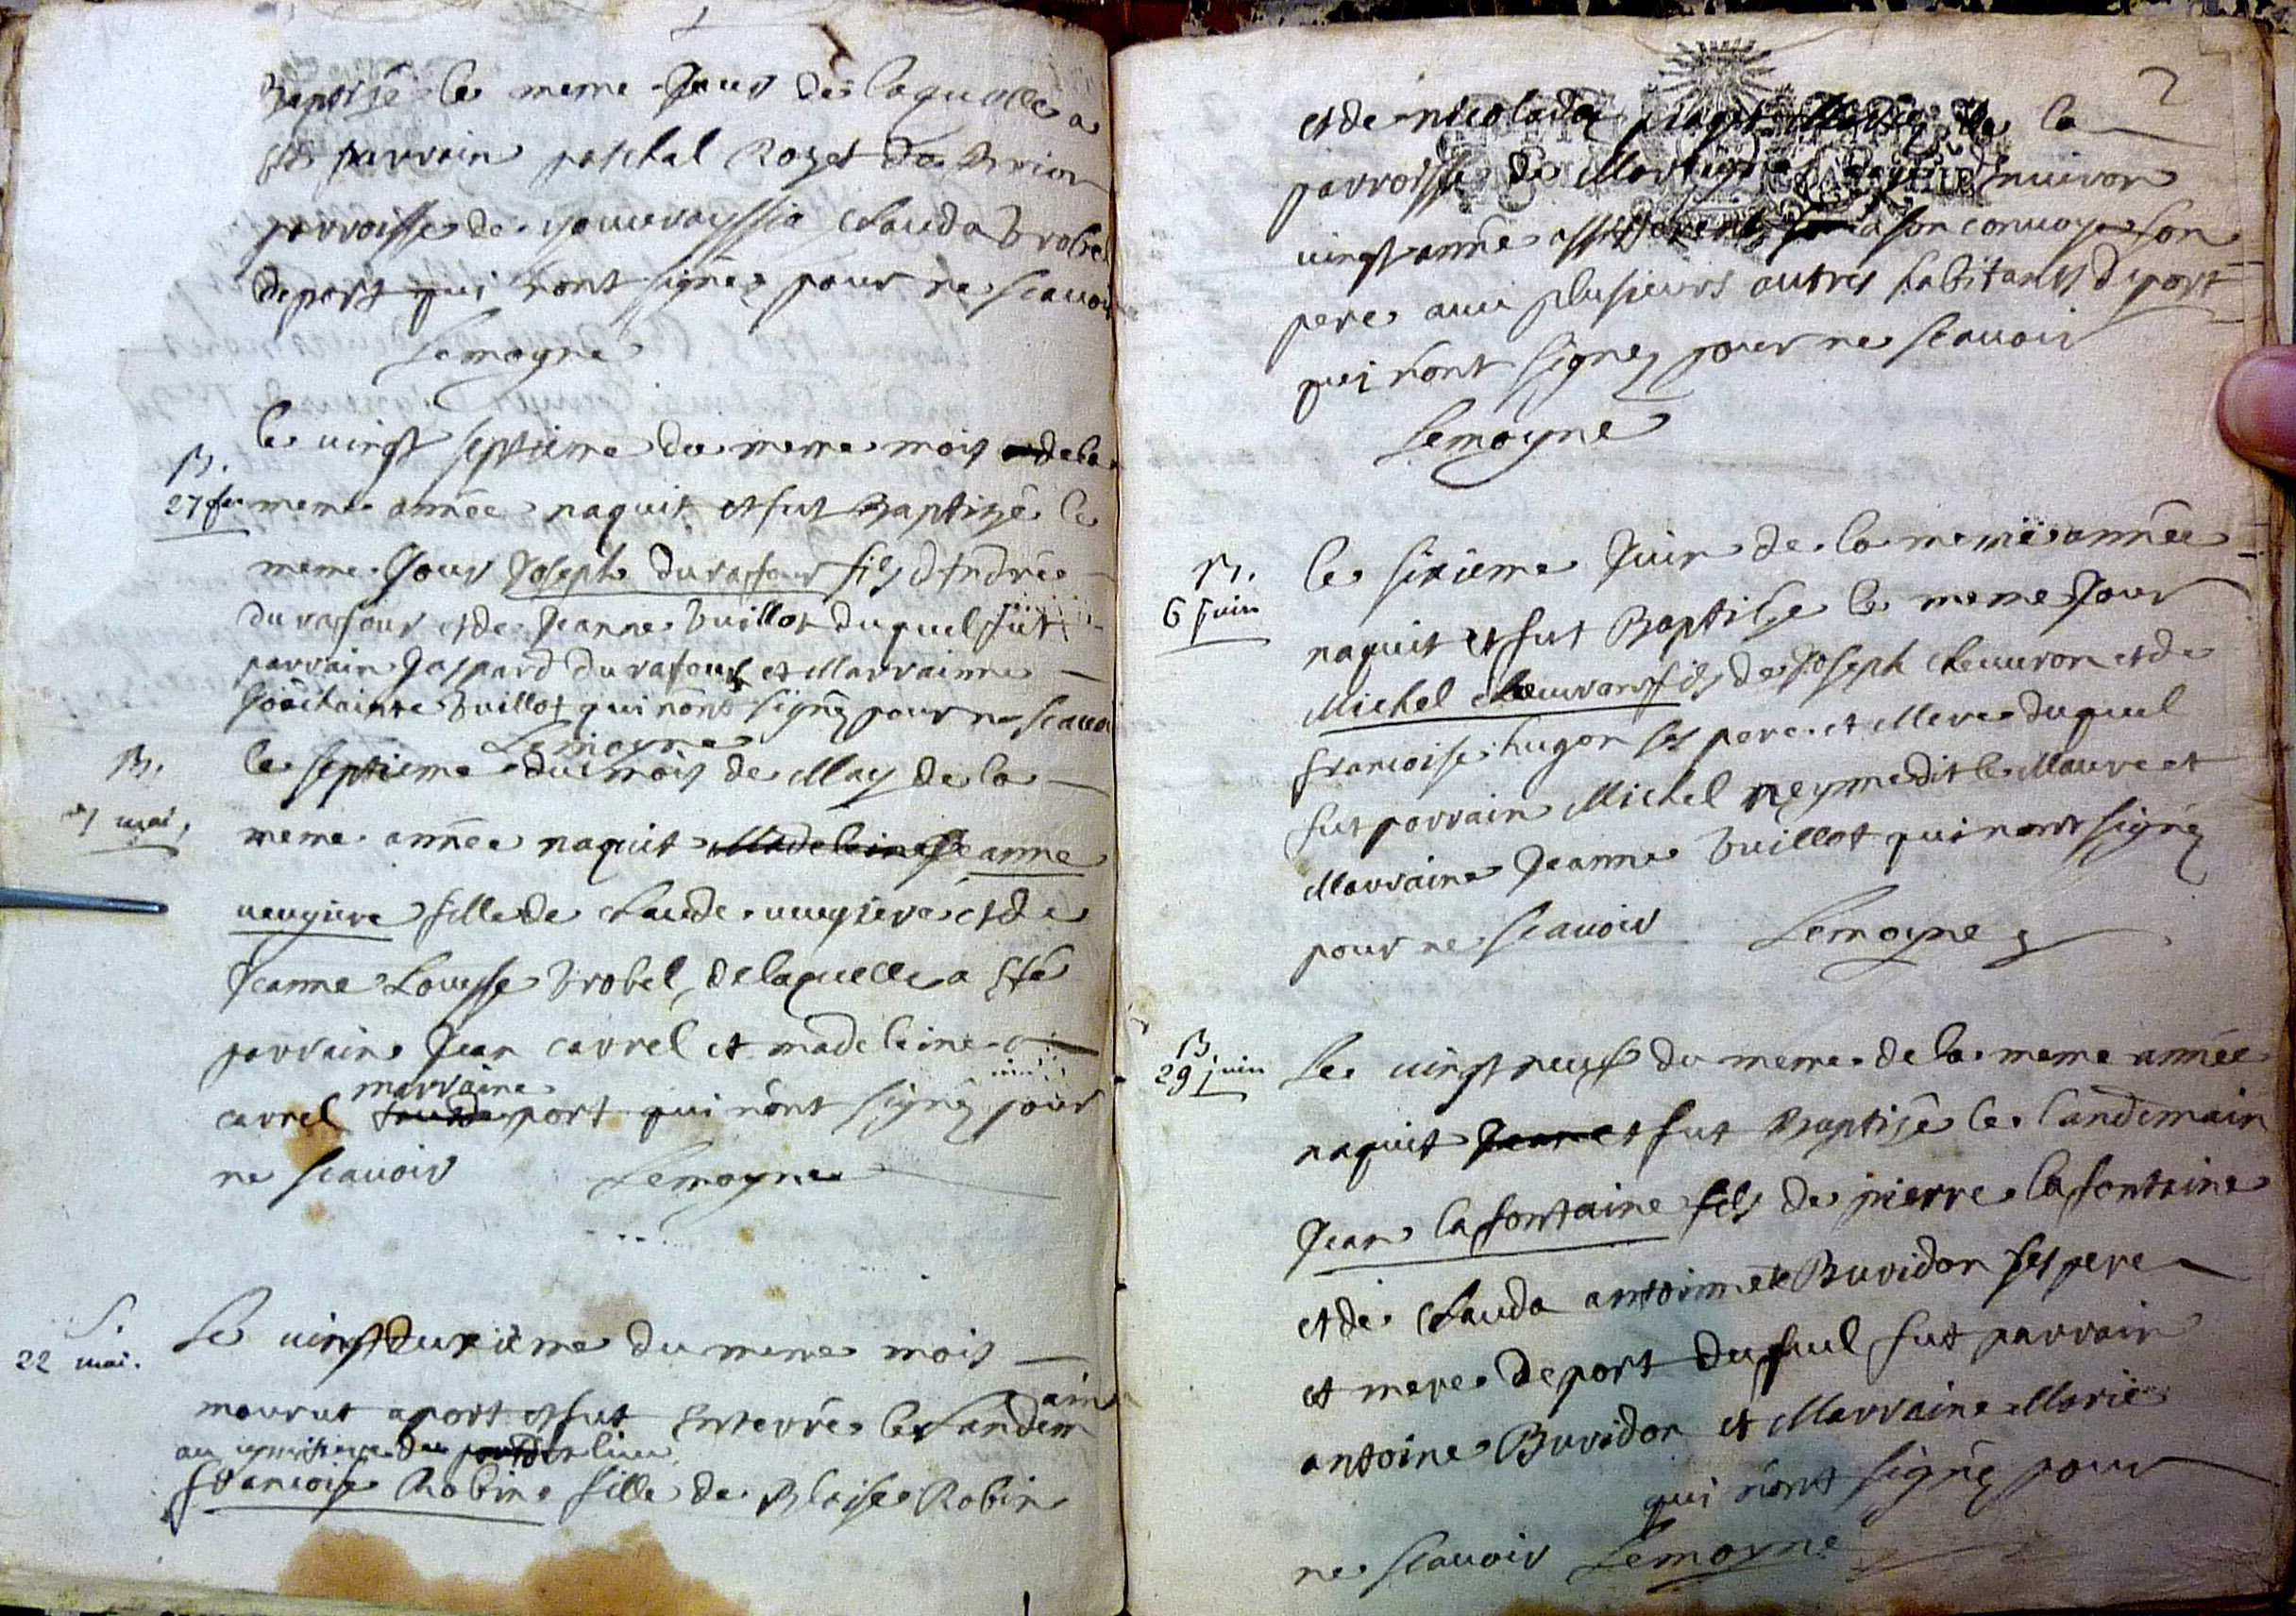 Baptisé le meme Jour de laquelle a
esté parrain paschal Rozet de Brion
parroisse de Clauda Brobel
de port qui n'ont signéz pour ne scavoir
Lemoyne
B.
27 fev
le vingt septieme du meme mois de la
meme année naquit et fut Baptizé le
meme Jour Joseph durafour fils d'André
durafour et de Jeanne Vuillot duquel fut
parrain Jaspard durafour et Marrainne
Vuillot qui n'ont signéz pour ne scavoir
Lemoyne
B.
7 mai
le septieme du mois de May de la
meme année naquit Madeleine Jeanne
fille de Claude et de
Jeanne Louysse Brobel, de laquelle a Eté
parrain Jean carrel et madeleine
marraine
carrel port qui n'ont signéz pour
ne scavoir Lemoyne
S.
22 mai.
Le vingt deuxième du meme mois
mourut a port et fut Enterrée le Landemain
au cymitiere du lieu
francoise Robin fille de Blaise Robin
2
et de nicolade la
parroisse de Martigna agée d'enuiron
vingt année assisterent a son convoye son
pere avec plusieurs autres habitants de port
qui n'ont signéz pour ne scavoir
Lemoyne
B.
6 juin
le sixieme Juin de la meme année
naquit et fut Baptisé le meme Jour
Michel cheuuron fils de Joseph cheuuron et de
francoise hugon ses pere et Mere duquel
fut parrain Michel neyme dit le Maure et
Marraine Jeanne Vuillot qui n'ont signéz
pour ne scavoir Lemoyne
B
29 juin
Le vingt neuf du meme de la meme année
naquit Jean et fut Baptisé le landemain
Jean lafontaine fils de pierre lafontaine
et de Clauda antoinete Buridon ses pere
et mere de port duquel fut parrain
antoine Buridon et Marraine Marie
qui n'ont signéz pour
ne scavoir Lemoyne